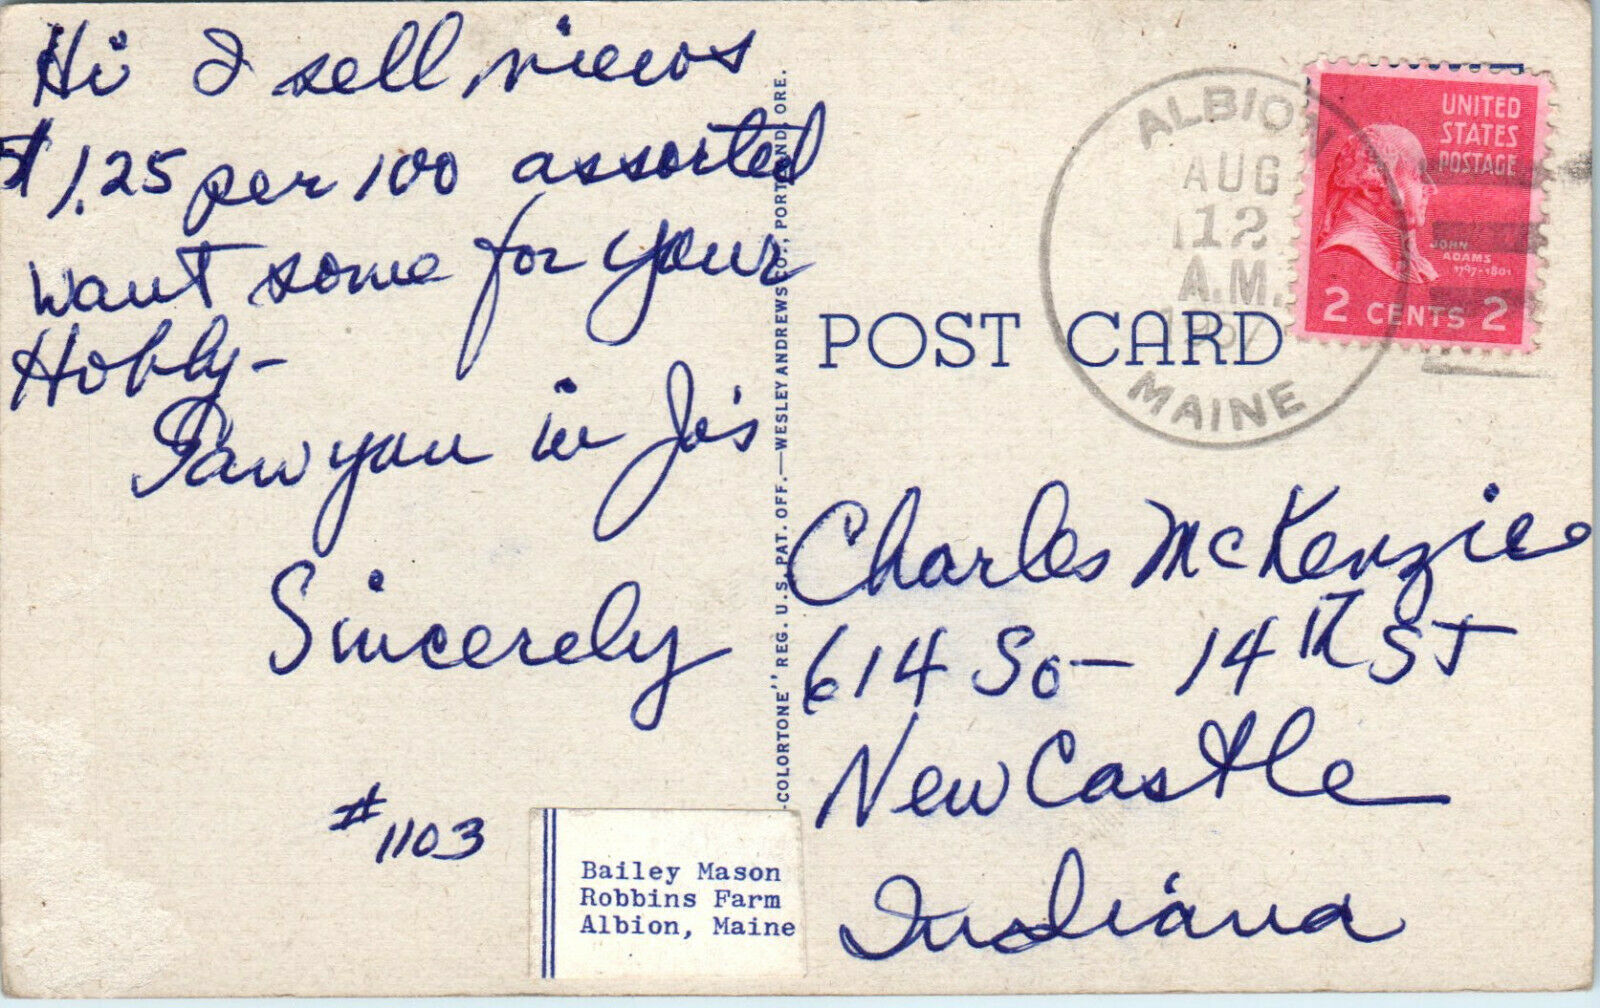 Hi I sell views
$1.25 per 100 assorted
want some for your
Hobby-
Saw you in Jo's
Sincerely
#1103
Bailey Mason
Robbins Farm
Albion, Maine
COLORTONE" REG. U.S. PAT. OFF.—WESLEY ANDREWS CO., PORTLAND, ORE.
POST CARD
ALBION
AUG
12
A.M.
1957
MAINE
UNITED
STATES
POSTAGE
JOHN
ADAMS
1797-1801
2 CENTS 2
Charles McKenzie
614 So- 14th ST
New Castle
Indiana